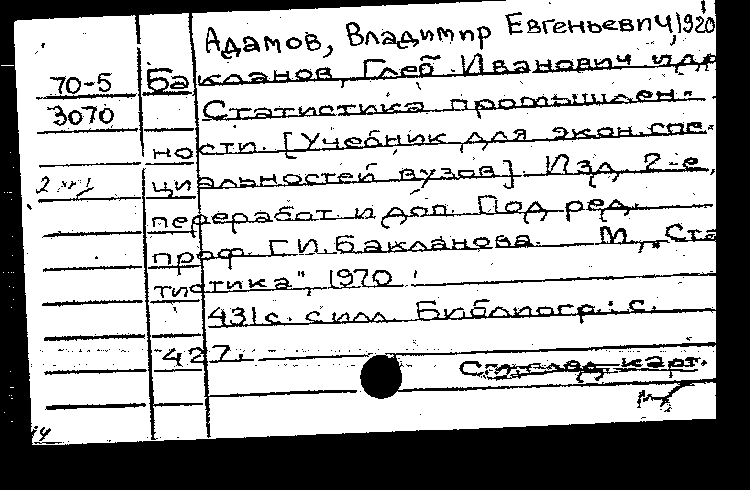 Адамов, Владимир Евгеньевич, 1920
70-5 Бакланов, Глеб Иванович и др
3070 Статистика промышлен-
ности. [Учебник для экон. спе-
циальностей вузов]. Изд. 2-е,
переработ. и доп. Под ред.
проф. Г.И. Бакланова. М., „Ста
тистика", 1970
431 с. с илл. Библиогр.: с.
427.
См. след. карт.